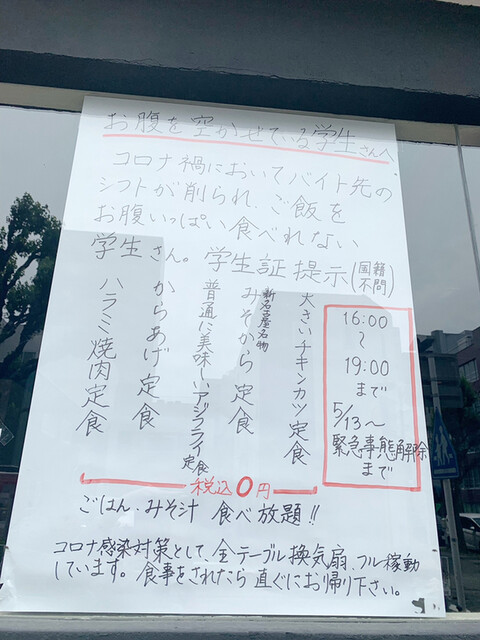 お腹を空かせている学生さんへ
コロナ禍においてバイト先の
シフトが削られ、ご飯を
お腹いっぱい食べれない
学生さん。学生証提示(国籍不問)
16:00
～
19:00
まで
5/13～
緊急事態解除
まで
大きいチキンカツ定食
新名古屋名物
みそから定食
普通に美味しいアジフライ定食
からあげ定食
ハラミ焼肉定食
税込0円
ごはん・みそ汁 食べ放題!!
コロナ感染対策として、全テーブル換気扇、フル稼動
しています。食事をされたら直ぐにお帰り下さい。